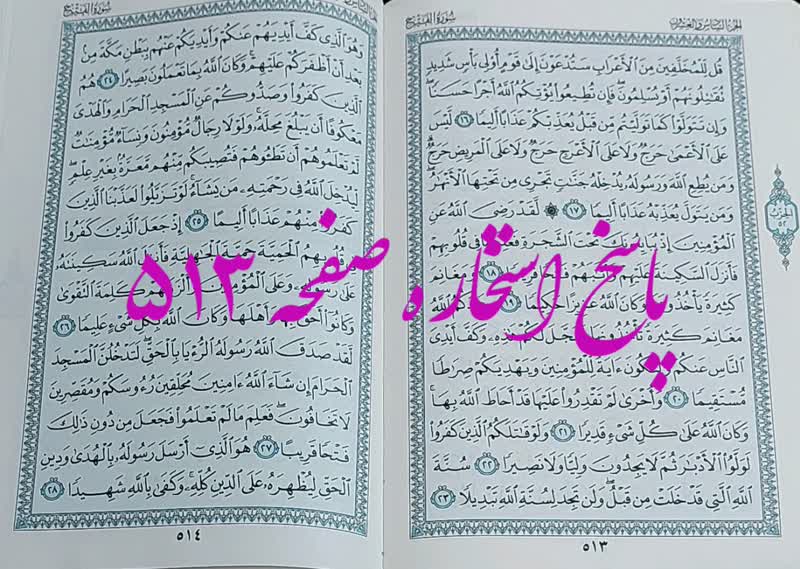 سُورَةُ الفَتْحِ
الجُزْءُ السَّادِسُ وَالعِشْرُونَ
قُل لِّلْمُخَلَّفِينَ مِنَ ٱلْأَعْرَابِ سَتُدْعَوْنَ إِلَىٰ قَوْمٍ أُو۟لِى بَأْسٍ شَدِيدٍ
تُقَـٰتِلُونَهُمْ أَوْ يُسْلِمُونَ ۖ فَإِن تُطِيعُوا۟ يُؤْتِكُمُ ٱللَّهُ أَجْرًا حَسَنًا ۖ
وَإِن تَتَوَلَّوْا۟ كَمَا تَوَلَّيْتُم مِّن قَبْلُ يُعَذِّبْكُمْ عَذَابًا أَلِيمًا ١٦ لَّيْسَ
عَلَى ٱلْأَعْمَىٰ حَرَجٌ وَلَا عَلَى ٱلْأَعْرَجِ حَرَجٌ وَلَا عَلَى ٱلْمَرِيضِ حَرَجٌ ۗ
وَمَن يُطِعِ ٱللَّهَ وَرَسُولَهُۥ يُدْخِلْهُ جَنَّـٰتٍ تَجْرِى مِن تَحْتِهَا ٱلْأَنْهَـٰرُ ۖ
وَمَن يَتَوَلَّ يُعَذِّبْهُ عَذَابًا أَلِيمًا ١٧ ۞ لَّقَدْ رَضِىَ ٱللَّهُ عَنِ
ٱلْمُؤْمِنِينَ إِذْ يُبَايِعُونَكَ تَحْتَ ٱلشَّجَرَةِ فَعَلِمَ مَا فِى قُلُوبِهِمْ
فَأَنزَلَ ٱلسَّكِينَةَ عَلَيْهِمْ وَأَثَـٰبَهُمْ فَتْحًا قَرِيبًا ١٨ وَمَغَانِمَ
كَثِيرَةً يَأْخُذُونَهَا ۗ وَكَانَ ٱللَّهُ عَزِيزًا حَكِيمًا ١٩ ٱللَّهُ
مَغَانِمَ كَثِيرَةً تَأْخُذُونَهَا فَعَجَّلَ لَكُمْ هَـٰذِهِۦ وَكَفَّ أَيْدِىَ
ٱلنَّاسِ عَنكُمْ وَلِتَكُونَ ءَايَةً لِّلْمُؤْمِنِينَ وَيَهْدِيَكُمْ صِرَٰطًا
مُّسْتَقِيمًا ٢٠ وَأُخْرَىٰ لَمْ تَقْدِرُوا۟ عَلَيْهَا قَدْ أَحَاطَ ٱللَّهُ بِهَا ۚ
وَكَانَ ٱللَّهُ عَلَىٰ كُلِّ شَىْءٍ قَدِيرًا ٢١ وَلَوْ قَـٰتَلَكُمُ ٱلَّذِينَ كَفَرُوا۟
لَوَلَّوُا۟ ٱلْأَدْبَـٰرَ ثُمَّ لَا يَجِدُونَ وَلِيًّا وَلَا نَصِيرًا ٢٢ سُنَّةَ
ٱللَّهِ ٱلَّتِى قَدْ خَلَتْ مِن قَبْلُ ۖ وَلَن تَجِدَ لِسُنَّةِ ٱللَّهِ تَبْدِيلًا ٢٣
٥١٣
الحِزْبُ
٥٢
سُورَةُ الفَتْحِ
وَهُوَ ٱلَّذِى كَفَّ أَيْدِيَهُمْ عَنكُمْ وَأَيْدِيَكُمْ عَنْهُم بِبَطْنِ مَكَّةَ مِنۢ
بَعْدِ أَنْ أَظْفَرَكُمْ عَلَيْهِمْ ۚ وَكَانَ ٱللَّهُ بِمَا تَعْمَلُونَ بَصِيرًا ٢٤ هُمُ
ٱلَّذِينَ كَفَرُوا۟ وَصَدُّوكُمْ عَنِ ٱلْمَسْجِدِ ٱلْحَرَامِ وَٱلْهَدْىَ
مَعْكُوفًا أَن يَبْلُغَ مَحِلَّهُۥ ۚ وَلَوْلَا رِجَالٌ مُّؤْمِنُونَ وَنِسَآءٌ مُّؤْمِنَـٰتٌ
لَّمْ تَعْلَمُوهُمْ أَن تَطَـُٔوهُمْ فَتُصِيبَكُم مِّنْهُم مَّعَرَّةٌۢ بِغَيْرِ عِلْمٍ ۖ
لِّيُدْخِلَ ٱللَّهُ فِى رَحْمَتِهِۦ مَن يَشَآءُ ۚ لَوْ تَزَيَّلُوا۟ لَعَذَّبْنَا ٱلَّذِينَ
كَفَرُوا۟ مِنْهُمْ عَذَابًا أَلِيمًا ٢٥ إِذْ جَعَلَ ٱلَّذِينَ كَفَرُوا۟
فِى قُلُوبِهِمُ ٱلْحَمِيَّةَ حَمِيَّةَ ٱلْجَـٰهِلِيَّةِ فَأَنزَلَ ٱللَّهُ سَكِينَتَهُۥ
عَلَىٰ رَسُولِهِۦ وَعَلَى ٱلْمُؤْمِنِينَ وَأَلْزَمَهُمْ كَلِمَةَ ٱلتَّقْوَىٰ
وَكَانُوٓا۟ أَحَقَّ بِهَا وَأَهْلَهَا ۚ وَكَانَ ٱللَّهُ بِكُلِّ شَىْءٍ عَلِيمًا ٢٦
لَّقَدْ صَدَقَ ٱللَّهُ رَسُولَهُ ٱلرُّءْيَا بِٱلْحَقِّ ۖ لَتَدْخُلُنَّ ٱلْمَسْجِدَ
ٱلْحَرَامَ إِن شَآءَ ٱللَّهُ ءَامِنِينَ مُحَلِّقِينَ رُءُوسَكُمْ وَمُقَصِّرِينَ
لَا تَخَافُونَ ۖ فَعَلِمَ مَا لَمْ تَعْلَمُوا۟ فَجَعَلَ مِن دُونِ ذَٰلِكَ
فَتْحًا قَرِيبًا ٢٧ هُوَ ٱلَّذِىٓ أَرْسَلَ رَسُولَهُۥ بِٱلْهُدَىٰ وَدِينِ
ٱلْحَقِّ لِيُظْهِرَهُۥ عَلَى ٱلدِّينِ كُلِّهِۦ ۚ وَكَفَىٰ بِٱللَّهِ شَهِيدًا ٢٨
٥١٤
پاسخ استخاره صفحه ۵۱۳